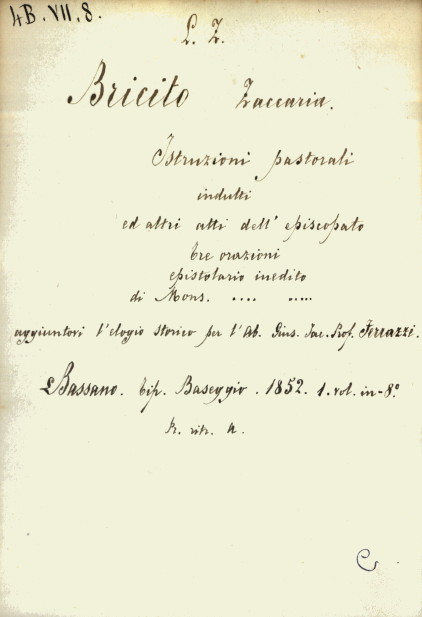 4B. VII. 8.
L. Z.
Bricito Zaccaria.
Istruzioni pastorali
indulti
ed altri atti dell' episcopato
tre orazioni
epistolario inedito
di Mons. .... .....
aggiuntovi l'elogio storico per l'Ab. Gius. Jac. Prof. Ferrazzi.
Bassano. tip. Baseggio. 1852. 1. vol. in-8º
R. ritr. A.
C